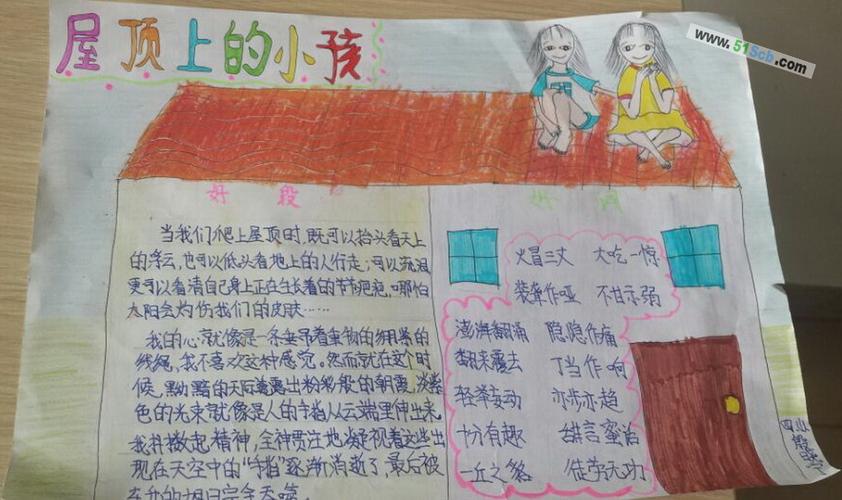 屋顶上的小孩
www.515cb.com
好段
当我们爬上屋顶时,既可以抬头看天上
的浮云,也可以低头看地上的人行走;可以
更可以看清自己身上正在生长着的节节疤疤,哪怕
太阳会灼伤我们的皮肤……
我的心就像是一条垂吊着重物的绷紧的
线绳,我不喜欢这种感觉。然而就在这个时
候,黝黯的天际露出粉彩般的朝霞,淡紫
色的光束就像是人的手指从云端里伸出来
我抖擞起精神,全神贯注地凝视着这些出
现在天空中的“手指”逐渐消逝了,最后被
好词
火冒三丈 大吃一惊
装聋作哑 不甘示弱
澎湃翻涌 隐隐作痛
翻来覆去 丁当作响
轻举妄动 亦步亦趋
十分有趣 甜言蜜语
一丘之貉 徒劳无功